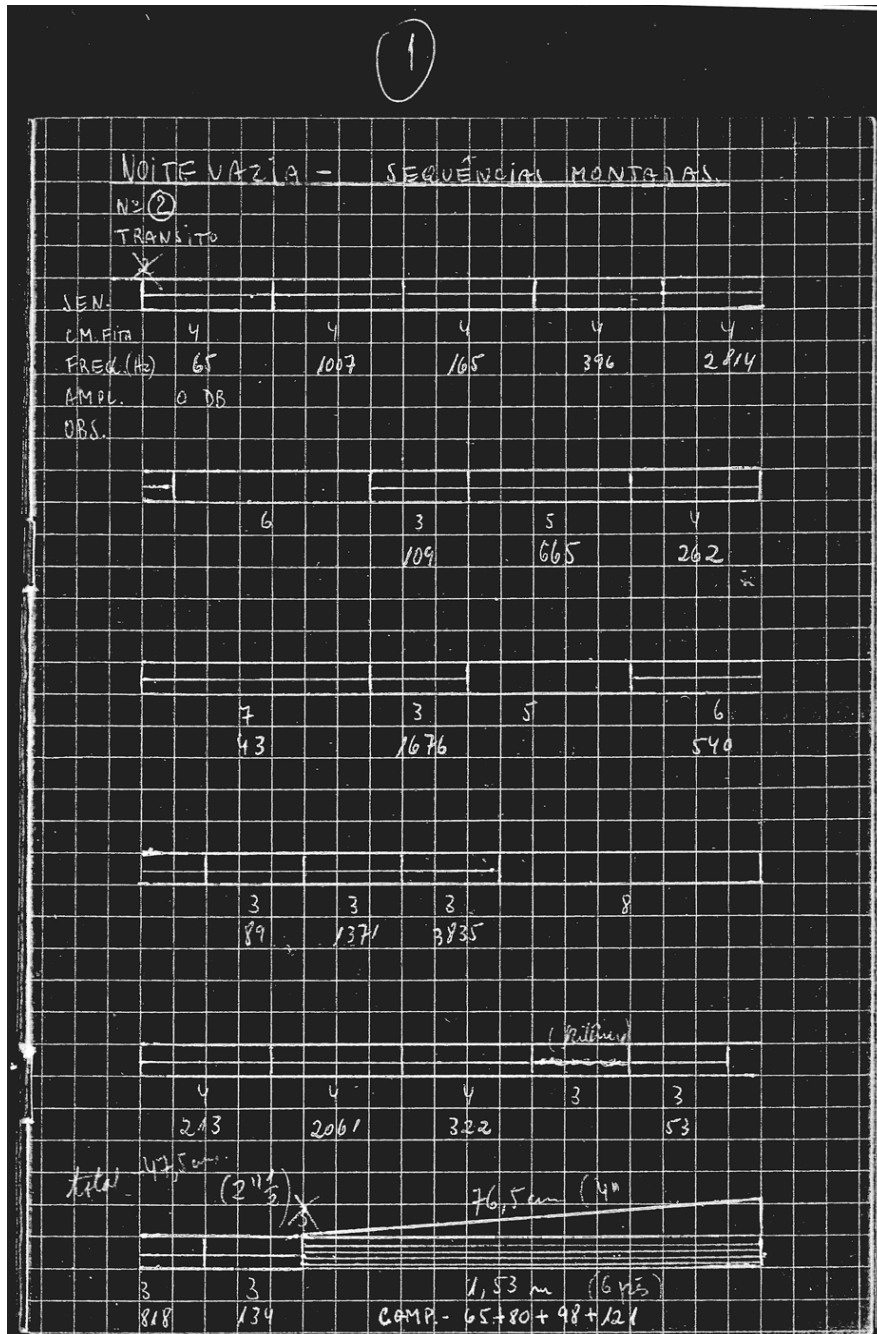 1
NOITE VAZIA - SEQUÊNCIAS MONTADAS.
Nº 2
TRANSITO
SEN.
CM. FITA 4 4 4 4 4
FREQ. (Hz) 65 1007 165 396 2814
AMPL. 0 DB
OBS.
6 3 5 4
109 665 262
7 3 5 6
43 1676 540
3 3 3 8
89 1371 3835
4 4 4 3 3
213 2061 322 53
total - 47,5 cm.
76,5 cm
3 3 1,53 m
818 134 COMP. - 65+80+98+121